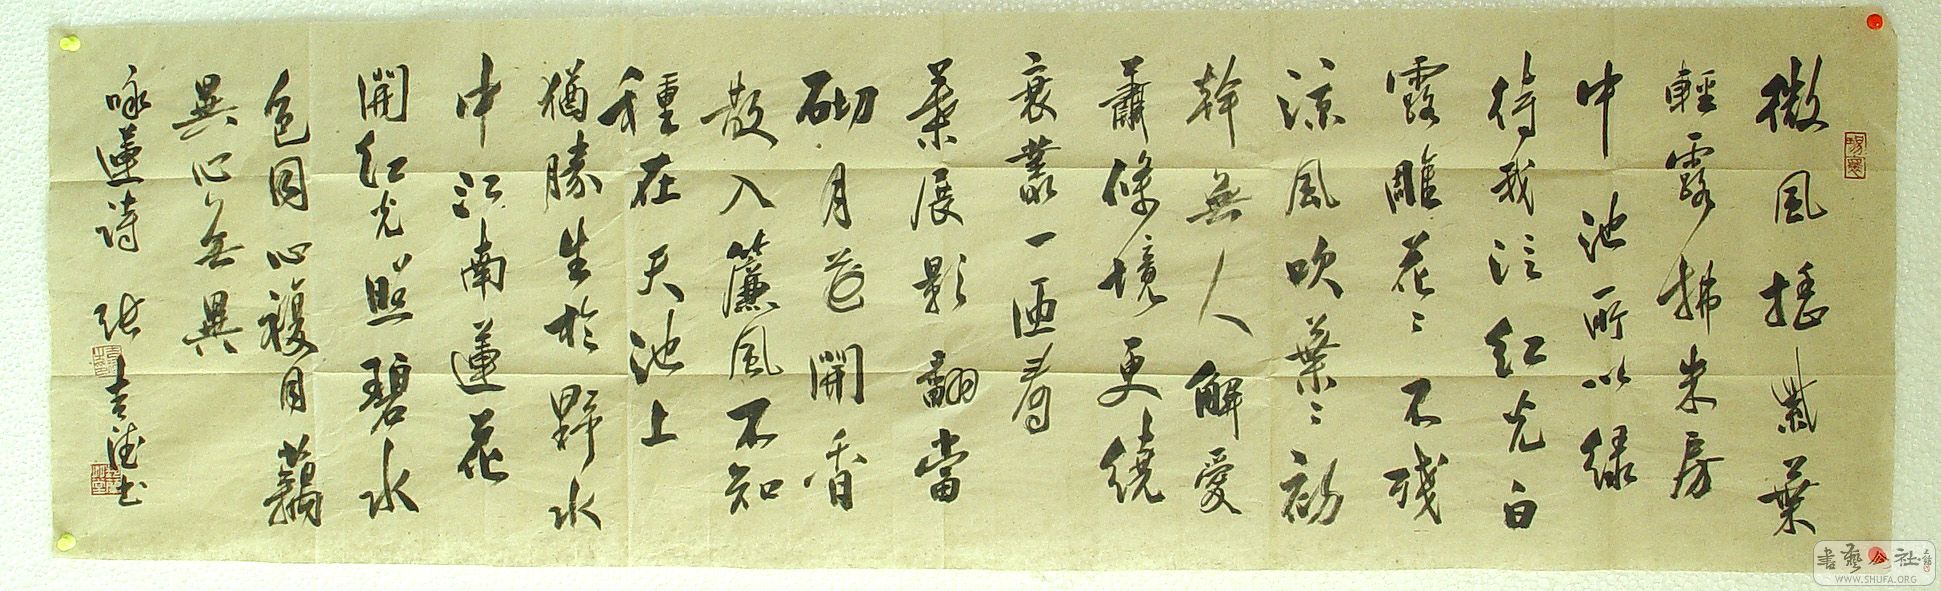 微風搖紫葉
輕露拂朱房
中池所以綠
待我泛紅光白
露雕花〻不殘
涼風吹葉〻初
幹無人解愛
蕭條境更繞
衰叢一迊看
葉展影翻當
砌月花開香
散入簾風不知
種在天池上
猶勝生於野水
中江南蓮花
開紅光照碧水
色同心複同藕
異心無異
咏蓮詩 张德书
書藝公社
WWW.SHUFA.ORG